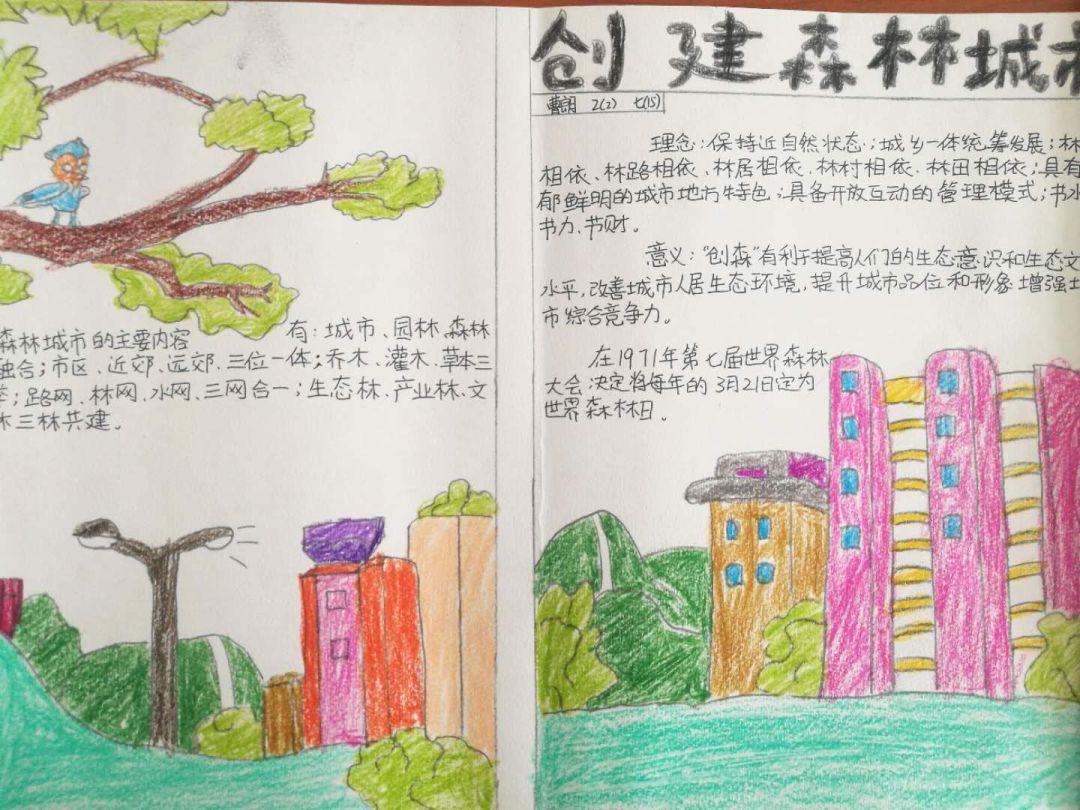 创建森林城市
2(2) 七(15)
理念:保持近自然状态;城乡一体统筹发展;林
相依、林路相依、林居相依、林村相依、林田相依;具有
郁鲜明的城市地方特色;具备开放互动的管理模式;书水
书力、节财。
意义:“创森”有利于提高人们的生态意识和生态文
水平,改善城市人居生态环境,提升城市品位和形象增强城
市综合竞争力。
在1971年第七届世界森林
大会决定将每年的3月21日定为
世界森林日。
森林城市的主要内容 有:城市、园林、森林
融合;市区、近郊、远郊、三位一体;乔木、灌木、草本三
;路网、林网、水网、三网合一;生态林、产业林、文
林三林共建。